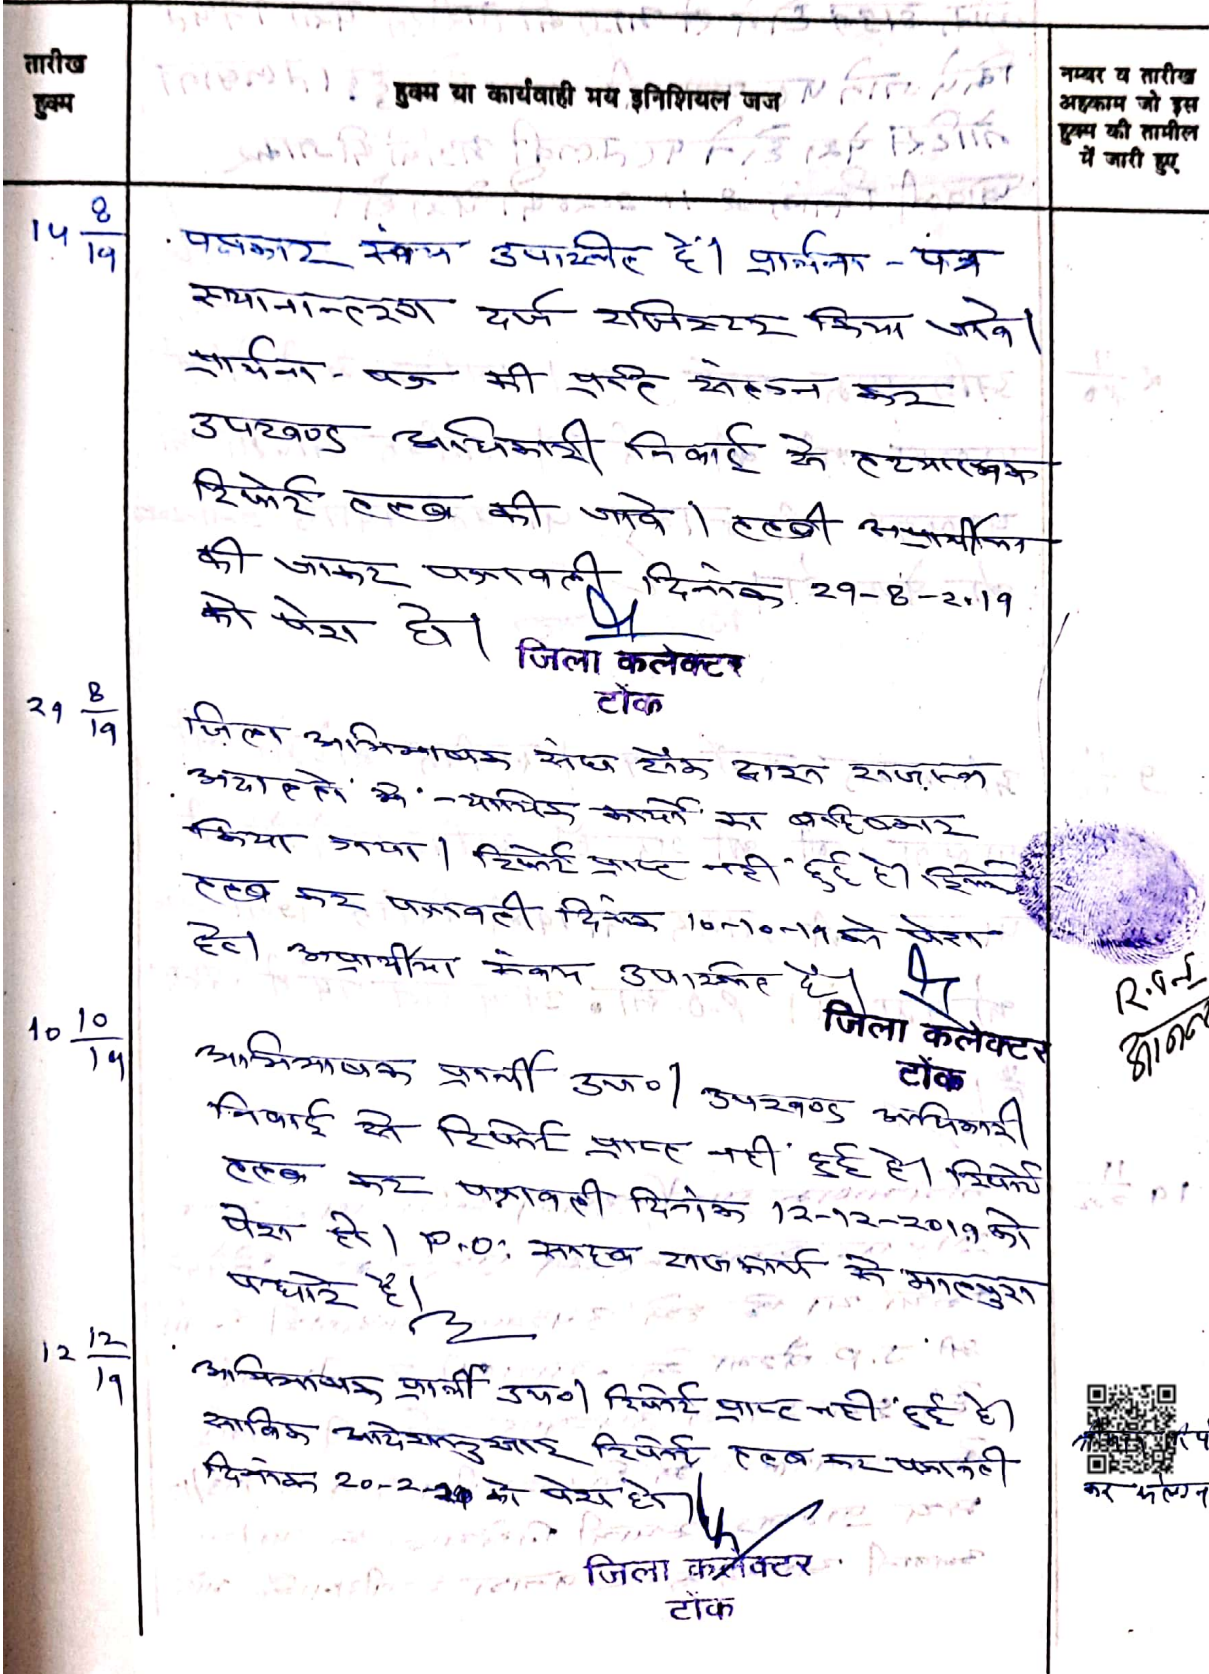 तारीख
हुक्म
हुक्म या कार्यवाही मय इनिशियल जज
नम्बर व तारीख
अहकाम जो इस
हुक्म की तामील
में जारी हुए
14 8/19
पक्षकार स्वंय उपस्थित है। प्रार्थना - पत्र
स्थानान्तरण दर्ज रजिस्टर किया जावे।
प्रार्थना - पत्र की प्रति संलग्न कर
उपखण्ड अधिकारी निवाई से तथ्यात्मक
रिपोर्ट तलब की जावे। तलबी अप्रार्थीगण
की जाकर पत्रावली दिनांक 29-8-2019
को पेश हो।
जिला कलेक्टर
टोंक
29 8/19
जिला अभिभाषक संघ टोंक द्वारा राजस्व
अदालतों के न्यायिक कार्यो का बहिष्कार
किया गया। रिपोर्ट प्राप्त नही हुई है। रिपोर्ट
तलब कर पत्रावली दिनांक 10-10-19 को पेश
हो। अप्रार्थीया स्वंय उपस्थित है।
जिला कलेक्टर
टोंक
10 10/19
अभिभाषक प्रार्थी उप०। उपखण्ड अधिकारी
निवाई से रिपोर्ट प्राप्त नही हुई है। रिपोर्ट
तलब कर पत्रावली दिनांक 12-12-2019 को
पेश हो। P.O. साहब राजकार्य से मालपुरा
पधारे है।
12 12/19
अभिभाषक प्रार्थी उप०। रिपोर्ट प्राप्त नही हुई है।
साबिक आदेशानुसार रिपोर्ट तलब कर पत्रावली
दिनांक 20-2-20 को पेश हो।
जिला कलेक्टर
टोंक
कर संलग्न